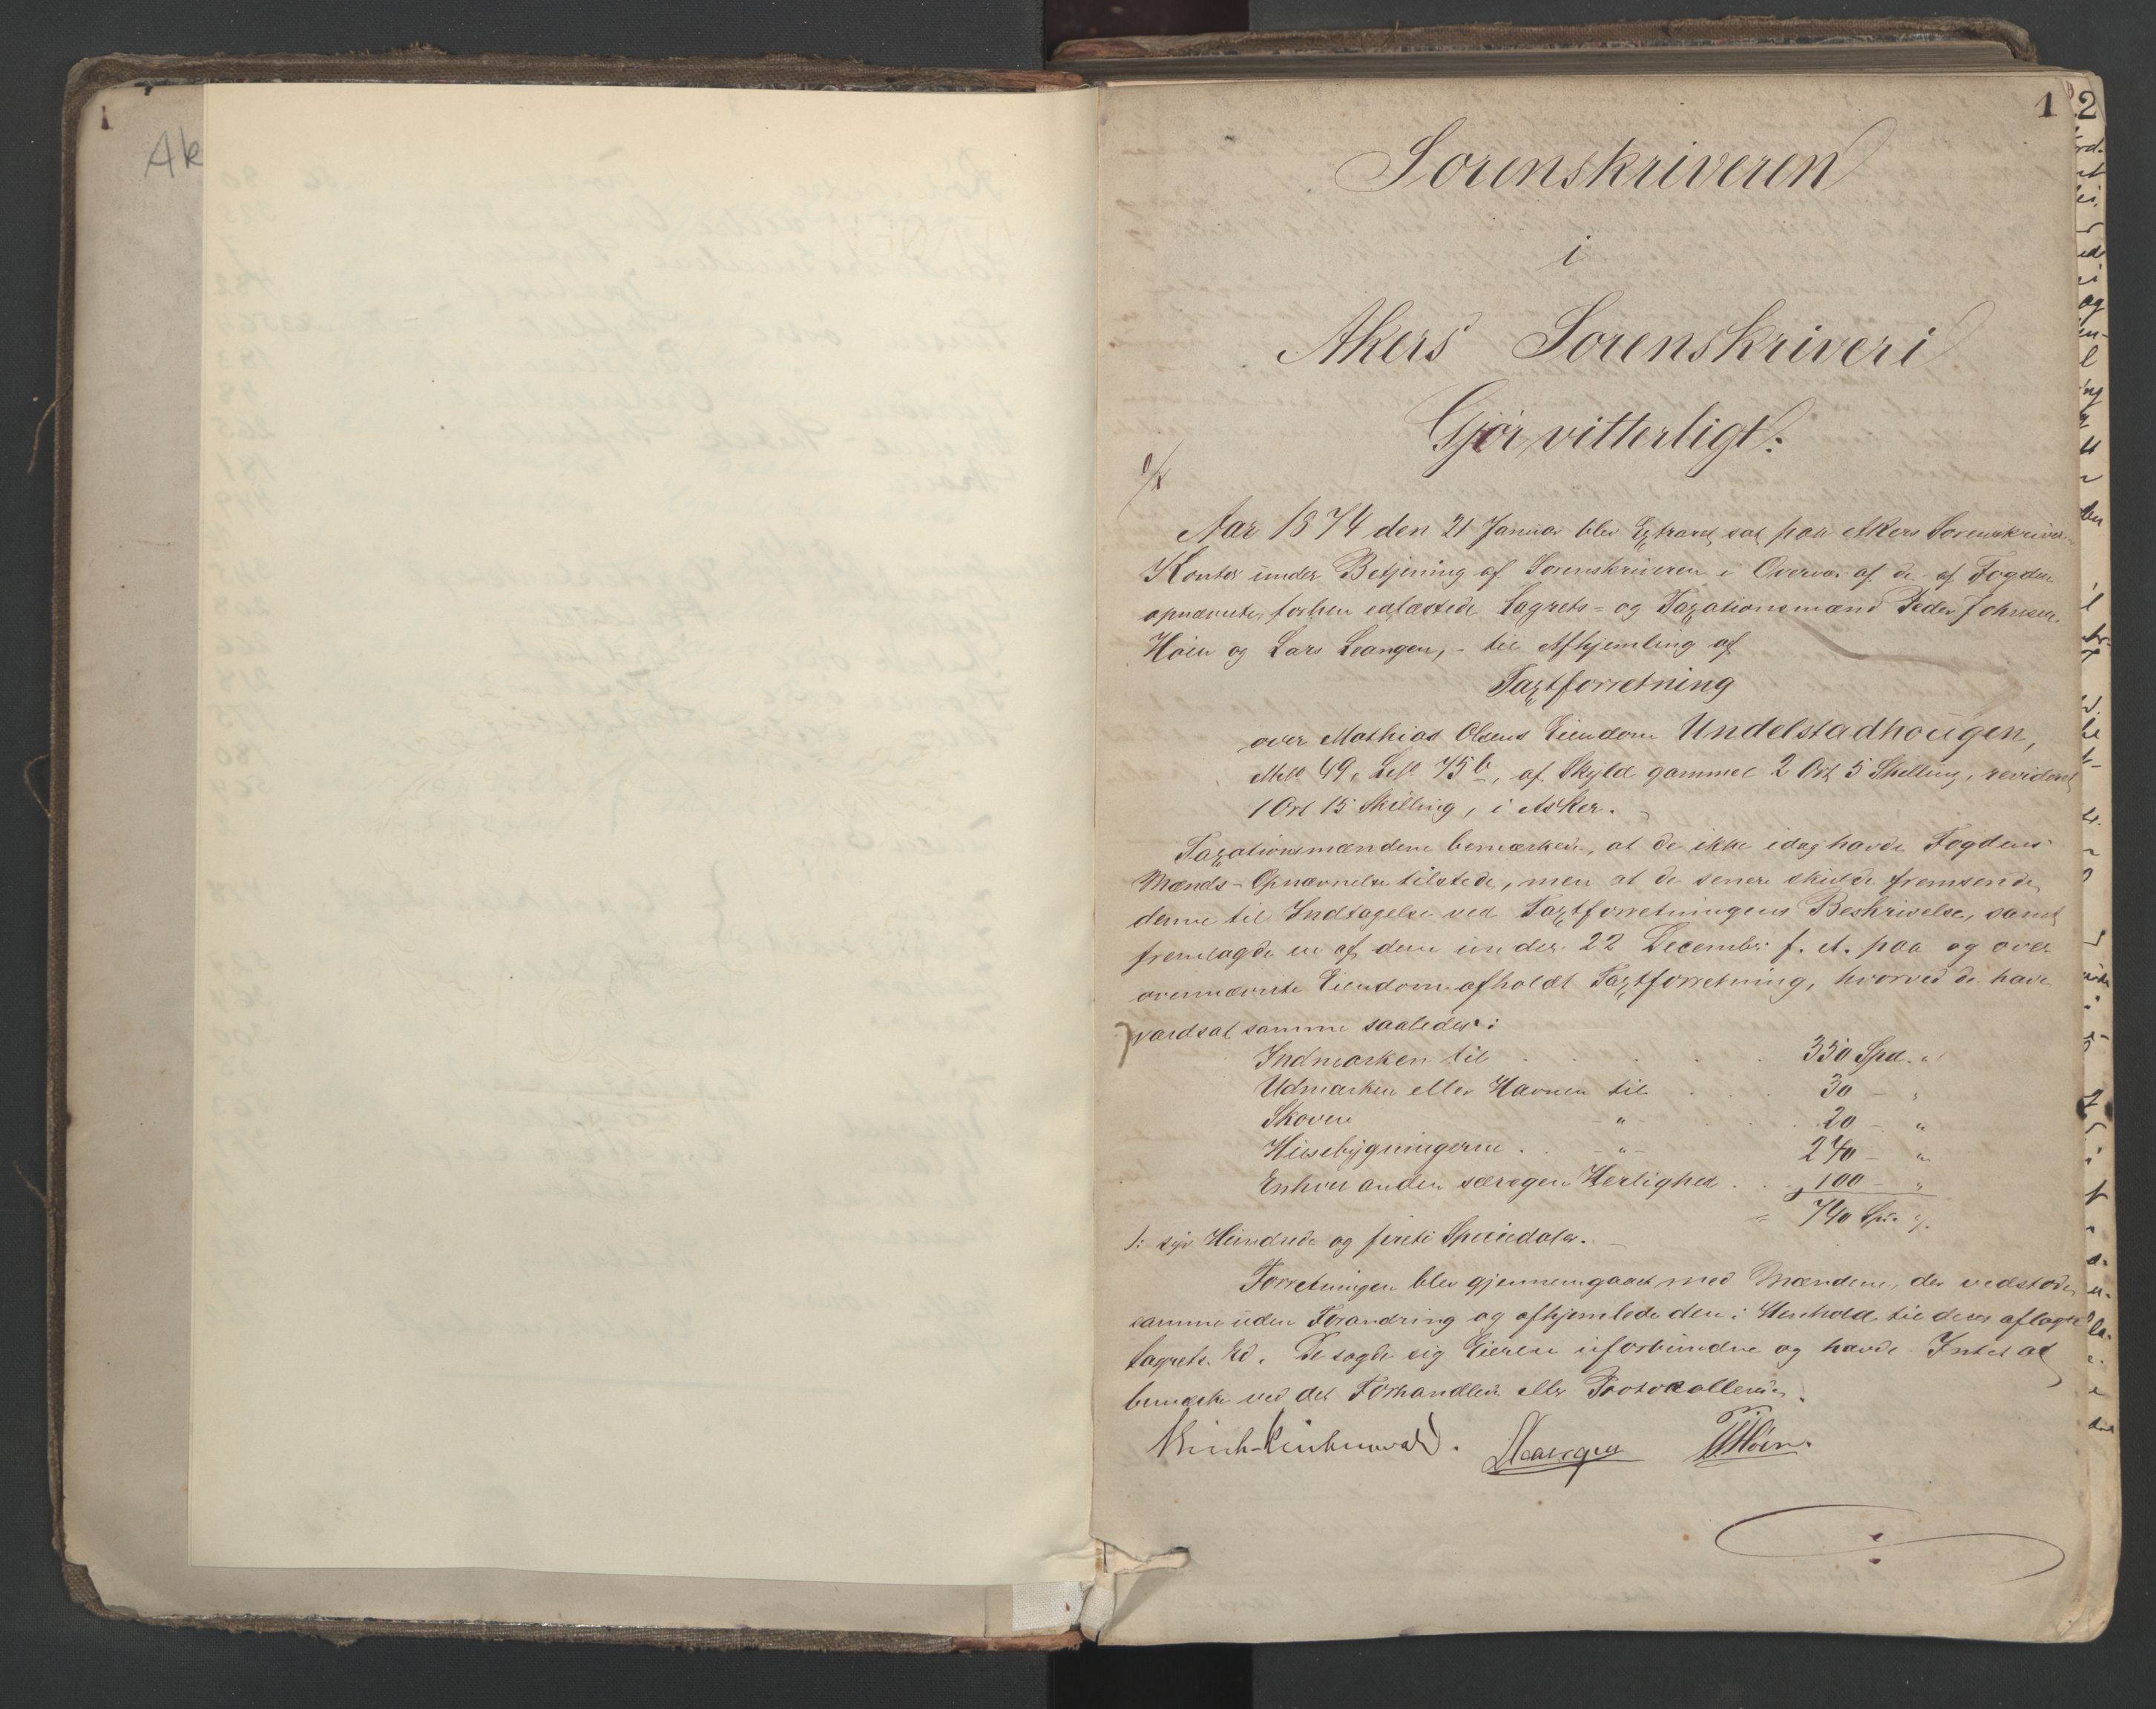 1
Ak
1
2
Sorenskriveren
i
Akers Sorenskriveri
Gjør vitterligt:
Aar 1874 den 21 Januar blev Extraret sat paa Akers Sorenskriver-
Kontor under Betjening af Sorenskriveren i Overvær af de af Fogden
opnævnte, forhen edfæstede Lagrets- og Taxationsmænd Peder Johnsen
Høien og Lars Leangen, - til Afhjemling af
Taxtforretning
over Mathias Olsens Eiendom Undelstadhougen,
Mno 49, Lno 75b, af Skyld gammel 2 Ort 5 Skilling, revideret
1 Ort 15 Skilling, i Asker.
Taxationsmændene bemærkede, at de ikke idag havde Fogdens
Mænds-Opnævnelse tilstede, men at de senere skulde fremsende
denne til Indtagelse ved Taxtforretningens Beskrivelse, samt
fremlagde en af dem under 22 Decembr f. A. paa og over
ovennævnte Eiendom afholdt Taxtforretning, hvorved de have
værdsat samme saaledes:
Indmarken til . . . . . 350 Spd. "
Udmarken eller Havnen til . . . 30 - "
Skoven -"- . . . 20 - "
Huusebygningerne . . -"- 240 - "
Enhver anden særegen Herlighed . . . 100 - "
= 740 Spd.
): syv Hundrede og fireti Speciedaler. -
Forretningen blev gjennemgaaet med Mændene, der vedstode
samme uden Forandring og afhjemlede den i Henhold til deres aflagte
Lagrets-Ed. De sagde sig Eieren uforbundne og havde Intet at
bemærke ved det Forhandlede eller Protokollerede.
LLeangen PJHøien.